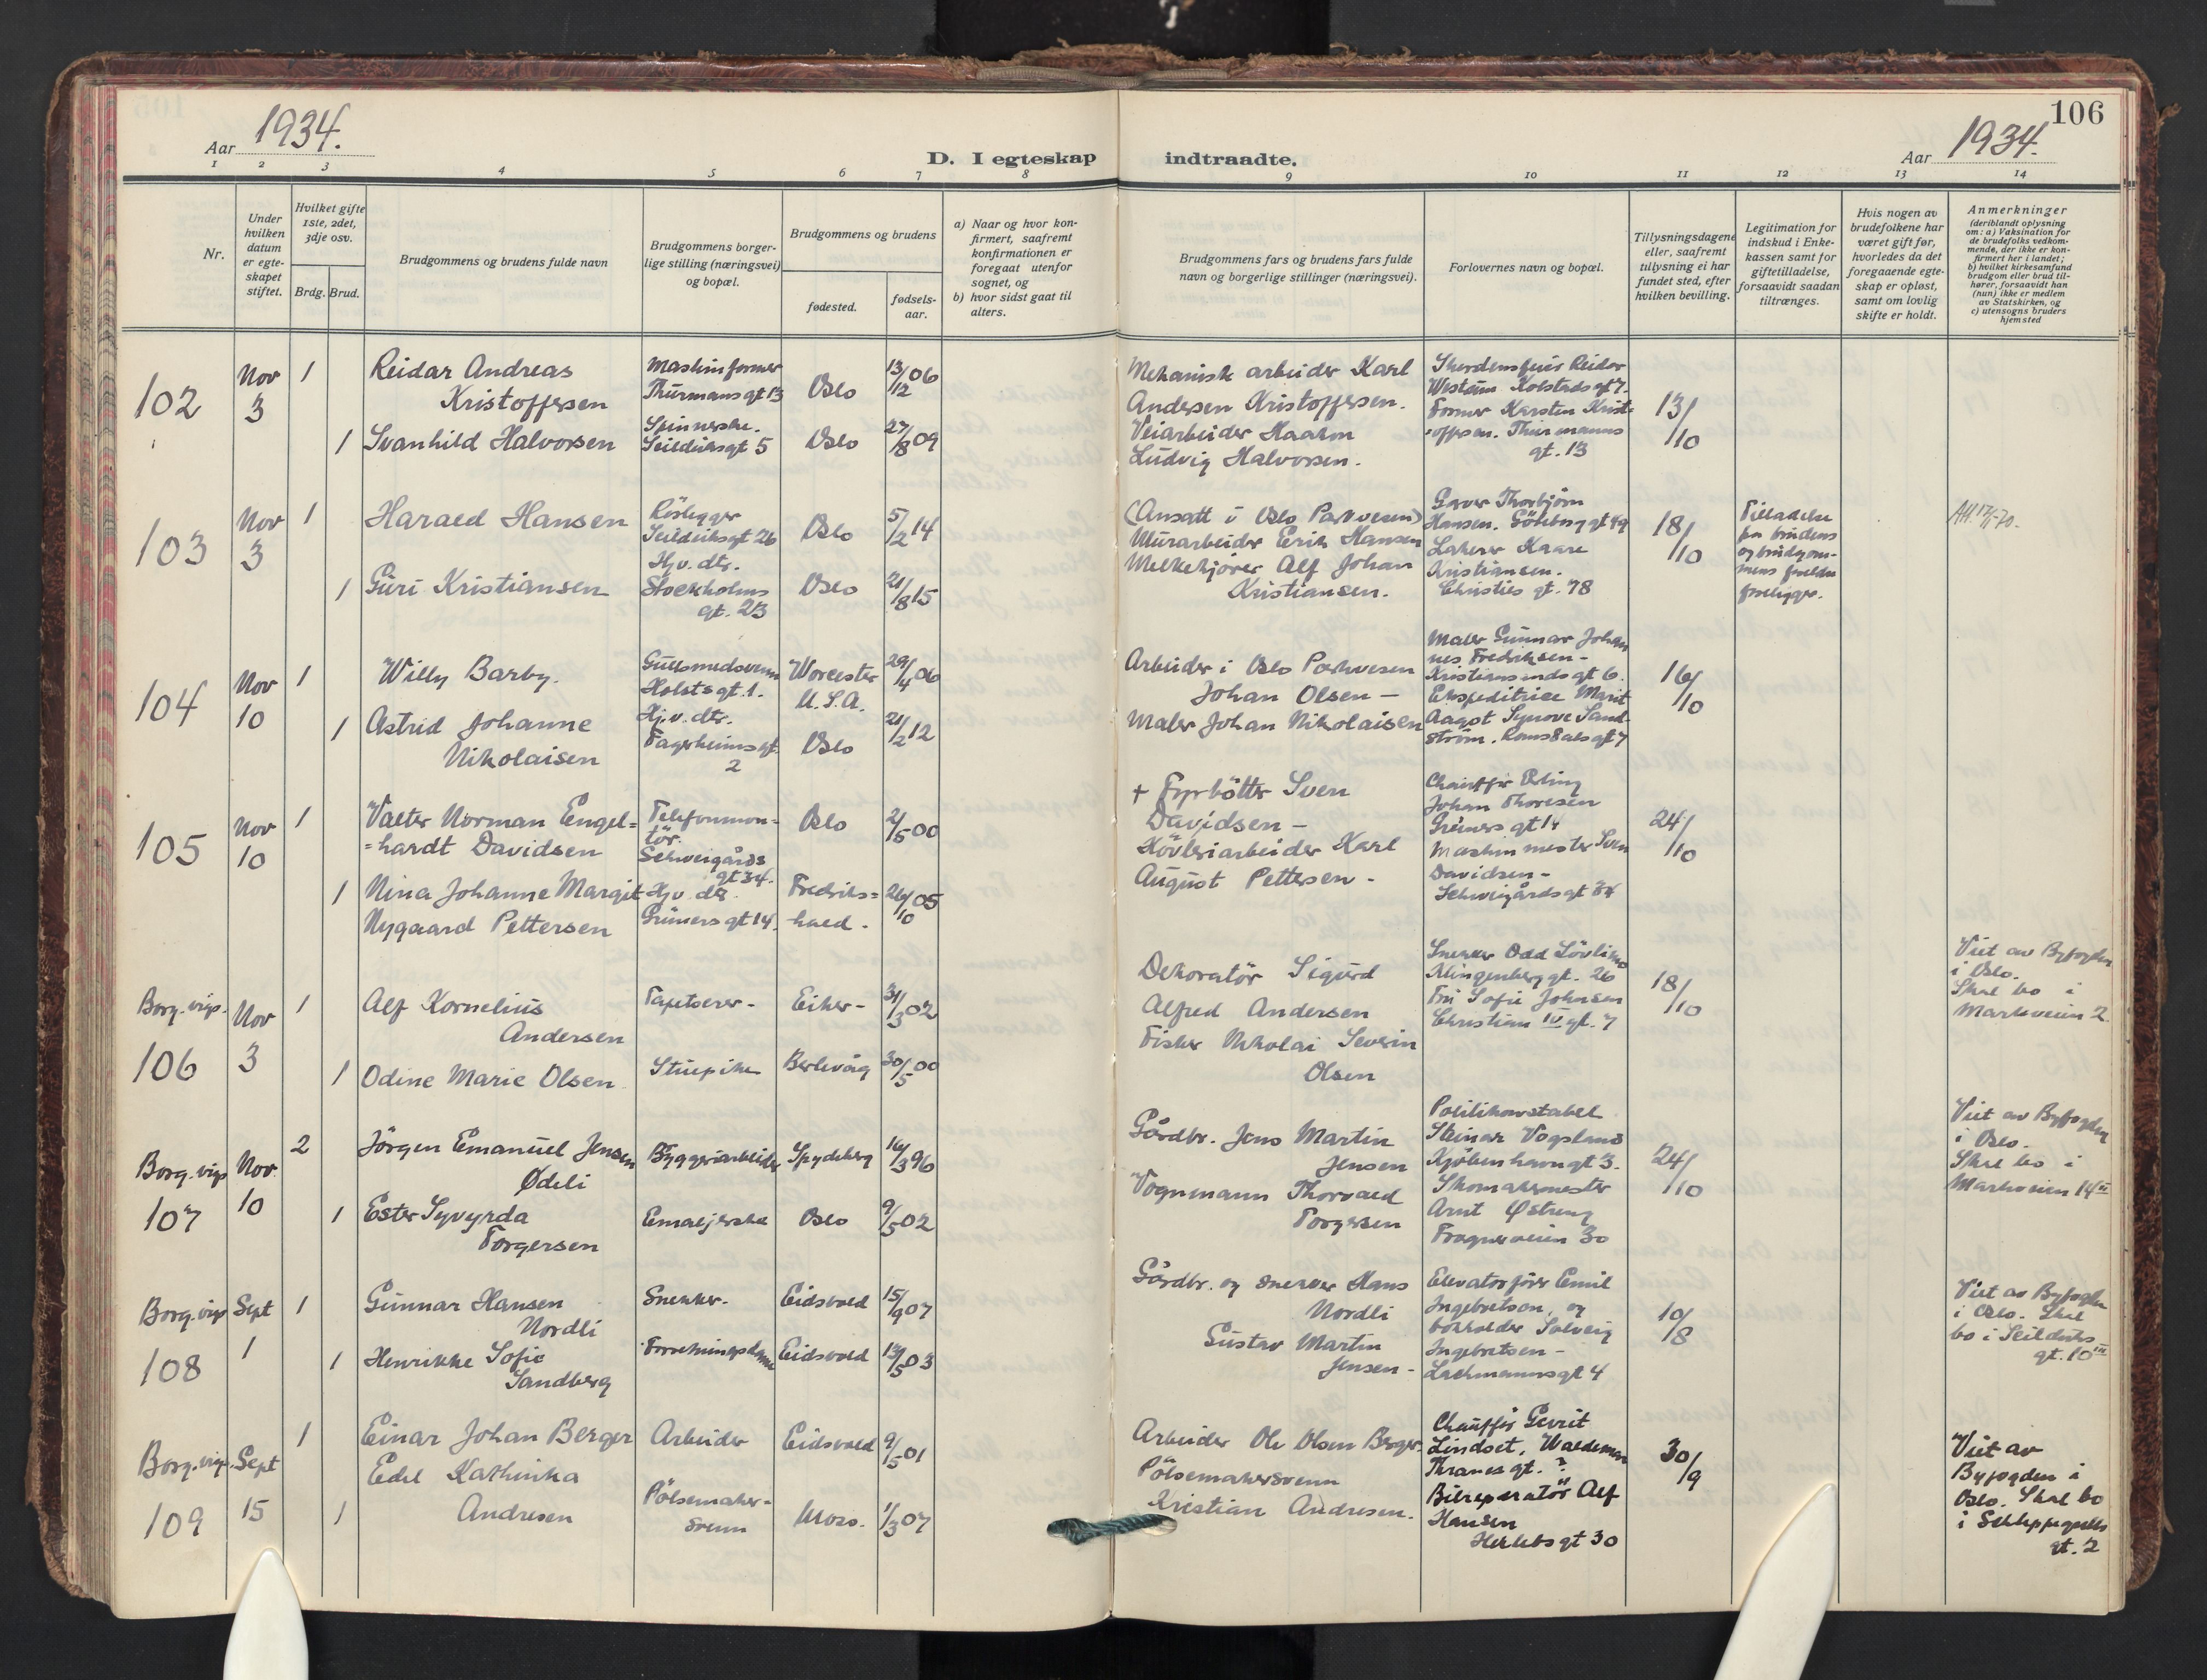 106
Aar 1934.
D. I egteskap indtraadte.
Aar 1934.
1 2 3 4 5 6 7 8 9 10 11 12 13 14
Nr.
Under hvilken datum er egte-skapet stiftet.
Hvilket gifte 1ste, 2det, 3dje osv.
Brdg. Brud.
Brudgommens og brudens fulde navn
Brudgommens borger-
lige stilling (næringsvei)
og bopæl.
Brudgommens og brudens
fødested.
fødsels-
aar.
a) Naar og hvor kon-
firmert, saafremt
konfirmationen er
foregaat utenfor
sognet, og
b) hvor sidst gaat til
alters.
Brudgommens fars og brudens fars fulde
navn og borgerlige stillinger (næringsvei).
Forlovernes navn og bopæl.
Tillysningsdagene
eller, saafremt
tillysning ei har
fundet sted, efter
hvilken bevilling.
Legitimation for
indskud i Enke-
kassen samt for
giftetilladelse,
forsaavidt saadan
tiltrænges.
Hvis nogen av
brudefolkene har
været gift før,
hvorledes da det
foregaaende egte-
skap er opløst,
samt om lovlig
skifte er holdt.
Anmerkninger
(deriblandt oplysning
om: a) Vaksination for
de brudefolks vedkom-
mende, der ikke er kon-
firmert her i landet;
b) hvilket kirkesamfund
brudgom eller brud til-
hører, forsaavidt han
(hun) ikke er medlem
av Statskirken, og
c) utensogns bruders
hjemsted
102
Nov
3
1
Reidar Andreas
Kristoffersen
Maskinformer
Thurmansgt 13
Oslo
13/12 06
1
Svanhild Halvorsen
Spinnerske.
Seilduksgt 5
Oslo
27/8 09
Mekanisk arbeider Karl
Andersen Kristoffersen.
Veiarbeider Haakon
Ludvig Halvorsen.
Reidar
Kolstadsgt 7.
Former Karsten Krist-
offersen. Thurmanns
gt. 13
13/10
103
Nov
3
1
Harald Hansen
Rörlegger
Seilduksgt 26
Oslo
5/2 14
1
Guri Kristiansen
Hjv. dtr.
Stockholms
gt. 23
Oslo
21/8 15
(Ansatt i Oslo Parkvesen)
Murarbeider Erik Hansen
Melkekjører Alf Johan
Kristiansen.
Garver Thorbjörn
Hansen. Göteborggt 49
Lakerer Kaare
Kristiansen.
Christies gt. 78
18/10
Tilladelse
fra brudens
og brudgom-
mens foreldre
foreligger.
104
Nov
10
1
Willy Barby.
Gullsmedsvenn
Holstsgt. 1.
Worcester
U.S.A.
29/4 06
1
Astrid Johanne
Nikolaisen
Hj.v. dtr.
Fagerheimsgt.
2
Oslo
21/2 12
Arbeider i Oslo Parkvesen
Johan Olsen —
Maler Johan Nikolaisen
Maler Gunnar Johan
nes Fredriksen -
Kristiansundsgt 6.
Ekspeditrice Marit
Aagot Synove Sand-
ström. Romsdalsgt 7
16/10
105
Nov
10
1
Valter Norman Engel=
=hardt Davidsen
Telefonmon-
tör.
Schweigårds
gt 34.
Oslo
2/5 00
1
Nina Johanne Margit
Nygaard Pettersen
Hjv. dtr.
Grüners gt 14.
Fredriks=
hald.
26/10 05
+ Fyrbötter Sven
Davidsen -
Hövleriarbeider Karl
August Pettersen -
Chauffør Erling
Johan Thoresen
Grüners gt 14
Maskinmester Sven
Davidsen -
Schweigårdsgt 34
24/10
Borg. vigs.
106
Nov
3
1
Alf Kornelius
Andersen
Tapetserer -
Eiker -
31/3 02
1
Odine Marie Olsen
Stuepike
Berlevåg
30/5 00
Dekoratör Sigurd
Alfred Andersen
Fisker Nikolai Severin
Olsen
Snekker Odd
Klingenberggt. 26
Fru Sofie Johnsen
Christian IV gt. 7
18/10
Viet av Byfogden
i Oslo.
Skal bo i
Markveien 2.
Borg. vigs
107
Nov.
10
2
Jörgen Emanuel Jensen
Ødeli
Byggeriarbeider
Spydeberg
16/3 96
1
Ester Syvyrda
Torgersen
Emaljerske
Oslo
9/5 02
Gårdbr. Jens Martin
Jensen
Vognmann Thorvald
Torgersen
Politikonstabel
Steinar Vogsland
Kjøbenhavngt 3.
Skomakermester
Arnt Østreng
Frognerveien 30
24/10
Viet av Byfogden
i Oslo.
Skal bo i
Markveien 14 II
Borg. vigs
108
Sept
1
1
Gunnar Hansen
Nordli
Snekker.
Eidsvold
15/9 07
1
Henrikke Sofie
Sandberg
Forretningsdame
Eidsvold
13/5 03
Gårdbr. og snekker Hans
Nordli
Gustav Martin
Jensen -
Elevatorfører Emil
Ingebretsen, og
bokholder Solveig
Ingebretsen -
Lachmannsgt 4
10/8
Viet av Byfogden
i Oslo. Skal
bo i Seilduks-
gt. 10 III
Borg. vigs.
109
Sept
15
1
Einar Johan Berger
Arbeider
Eidsvold
9/5 01
1
Edel Kathinka
Andresen
Pölsemaker-
svenn
Moss.
1/3 07
Arbeider Ole Olsen Berger.
Pölsemakersvenn
Kristian Andresen.
Chauffør Gerrit
Lindset, Waldemar
Thranesgt. ?
Bilreparatör Alf
Hansen
Herslebsgt 30
30/9
Viet av
Byfogden i
Oslo. Skal bo
i Schleppegrells
gt. 2